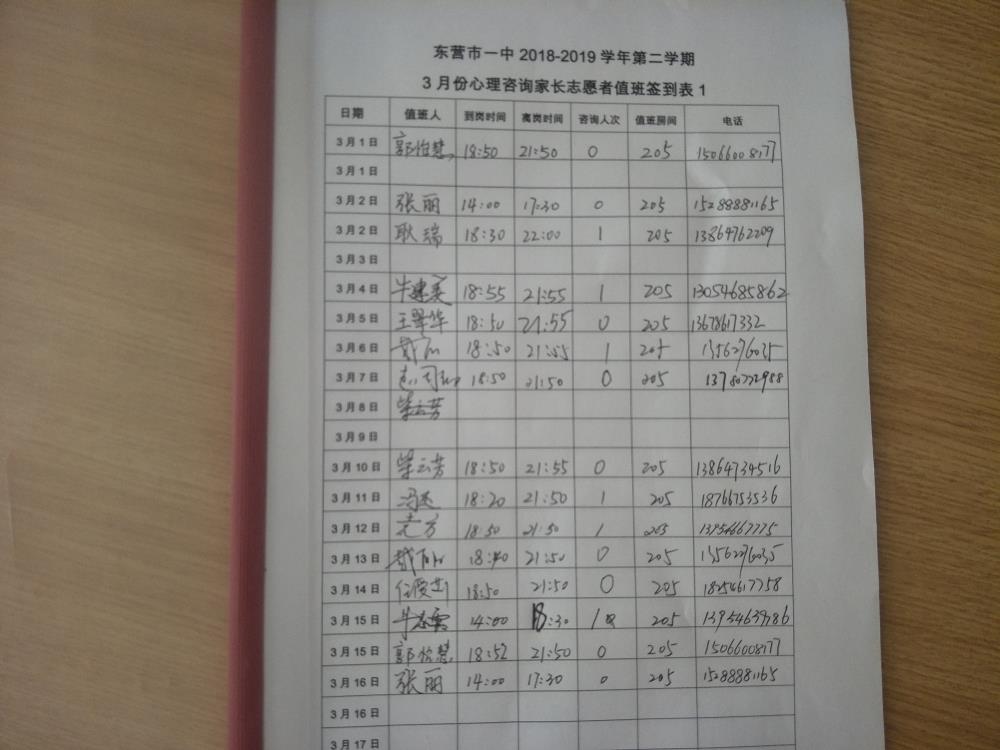 东营市一中 2018-2019 学年第二学期
3 月份心理咨询家长志愿者值班签到表 1
日期 值班人 到岗时间 离岗时间 咨询人次 值班房间 电话
3 月 1 日 郭怡慧 18:50 21:50 0 205 15066008177
3 月 1 日
3 月 2 日 张丽 14:00 17:30 0 205 15288881165
3 月 2 日 耿瑞 18:30 22:00 1 205 13864762209
3 月 3 日
3 月 4 日 牛建英 18:55 21:55 1 205 13054685862
3 月 5 日 王翠华 18:50 21:55 0 205 13678617332
3 月 6 日 18:50 21:55 1 205
3 月 7 日 18:50 21:50 0 205
3 月 8 日 柴云芳
3 月 9 日
3 月 10 日 柴云芳 18:50 21:55 0 205 13864734516
3 月 11 日 18:20 21:50 1 205 18766753536
3 月 12 日 18:50 21:50 1 205
3 月 13 日 21:50 0 205
3 月 14 日 18:50 21:50 0 205 18254617758
3 月 15 日 14:00 205 13954639786
3 月 15 日 郭怡慧 18:52 21:50 0 205 15066008177
3 月 16 日 张丽 14:00 17:30 0 205 15288881165
3 月 16 日
3 月 17 日